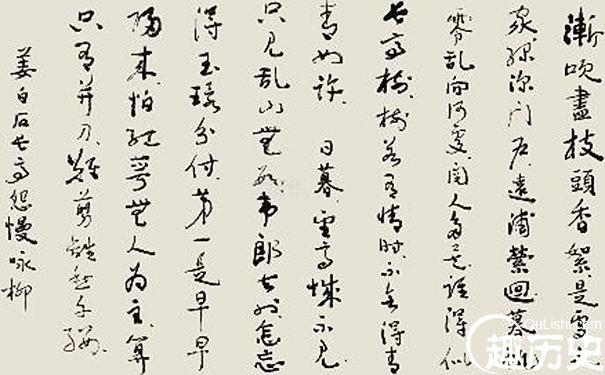 漸吹盡枝頭香絮是處
家綠深门户遠浦縈迴暮
零乱向何處閱人多矣誰得似
长亭樹樹若有情時不會得青
青如許 日暮望高城不見
只见乱山無数韦郎去也怎忘
得玉環分付第一是早早
歸来怕红萼無人为主算
只有并刀難剪離愁千縷
姜白石长亭怨慢咏柳
QuLishi.com
趣历史